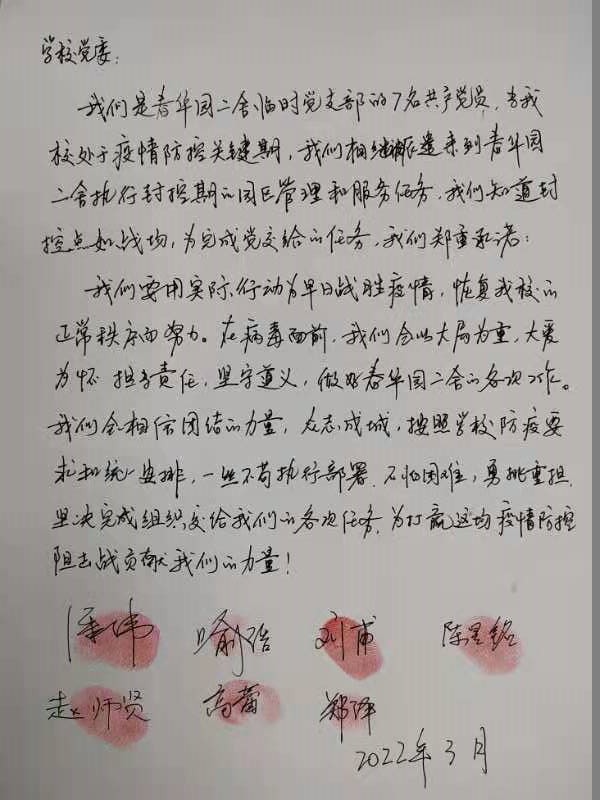 学校党委：
我们是春华园二舍临时党支部的7名共产党员，当我
校处于疫情防控关键期，我们相继被派遣来到春华园
二舍执行封控期的园区管理和服务任务，我们知道封
控点如战场，为完成党交给的任务，我们郑重承诺：
我们要用实际行动为早日战胜疫情，恢复我校的
正常秩序而努力。在病毒面前，我们会以大局为重，大爱
为怀 担当责任，坚守道义，做好春华园二舍的各项工作。
我们会相信团结的力量，众志成城，按照学校防疫要
求和统一安排，一丝不苟执行部署、不怕困难，勇挑重担
坚决完成组织交给我们的各项任务，为打赢这场疫情防控
阻击战贡献我们的力量！
刘甫 陈昱铭
赵师贤 高蕾 郑泽
2022年3月